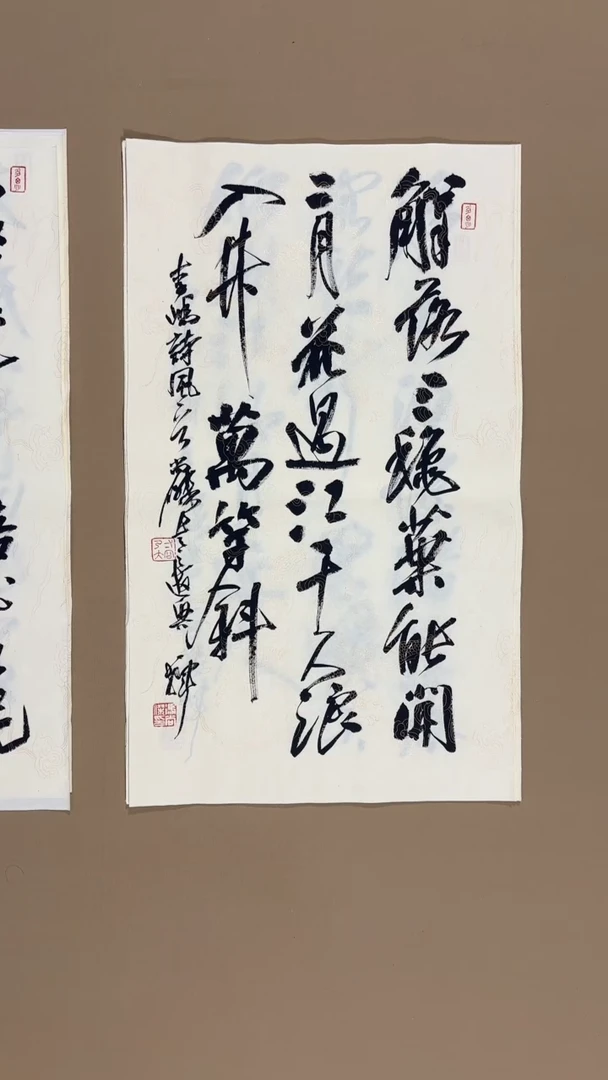 解落三秋葉能開
二月花過江千尺浪
入竹萬竿斜
李嶠詩風 遣興 輝